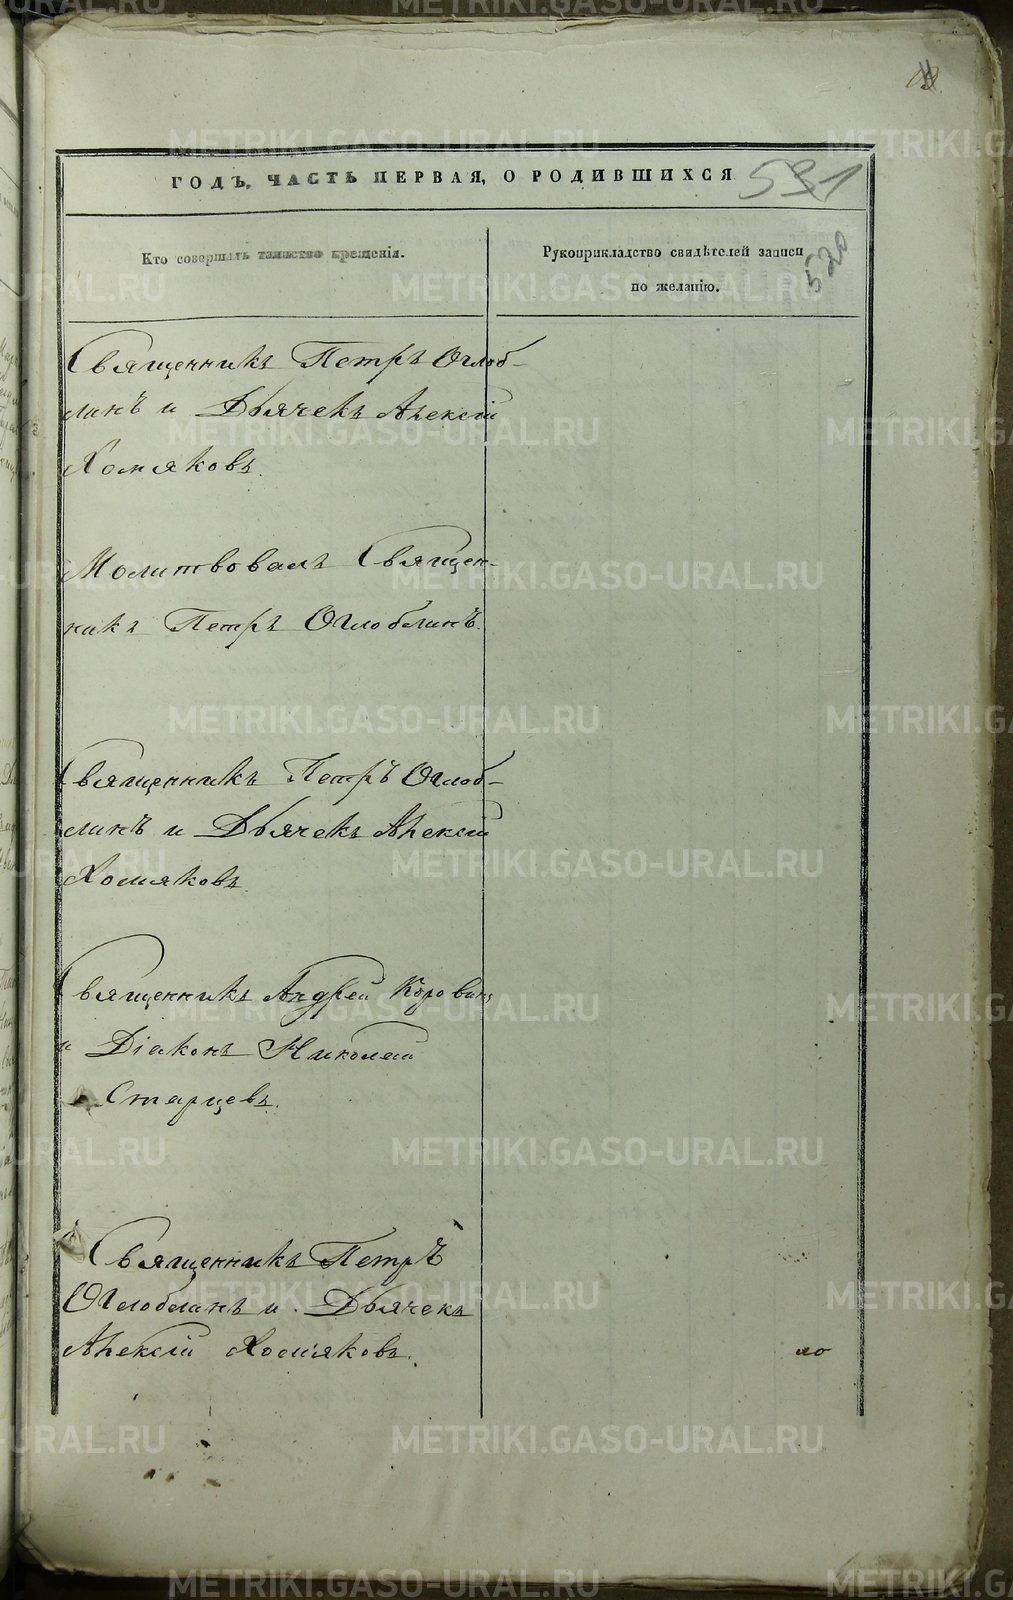 ГОДЪ, ЧАСТЬ ПЕРВАЯ, О РОДИВШИХСЯ
531
520
Кто совершалъ таинство крещенія.
Рукоприкладство свидѣтелей записи
по желанію.
Священникъ Петръ Оглоб-
линъ и Дьячекъ Алексій
Хомяковъ.
Молитвовалъ Священ-
никъ Петръ Оглоблинъ.
Священникъ Петръ Оглоб-
линъ и Дьячекъ Алексій
Хомяковъ.
Священникъ Андрей Коровинъ
и Діаконъ Николай
Старцевъ.
Священникъ Петръ
Оглоблинъ и Дьячекъ
Алексій Хомяковъ.
ло
METRIKI.GASO-URAL.RU